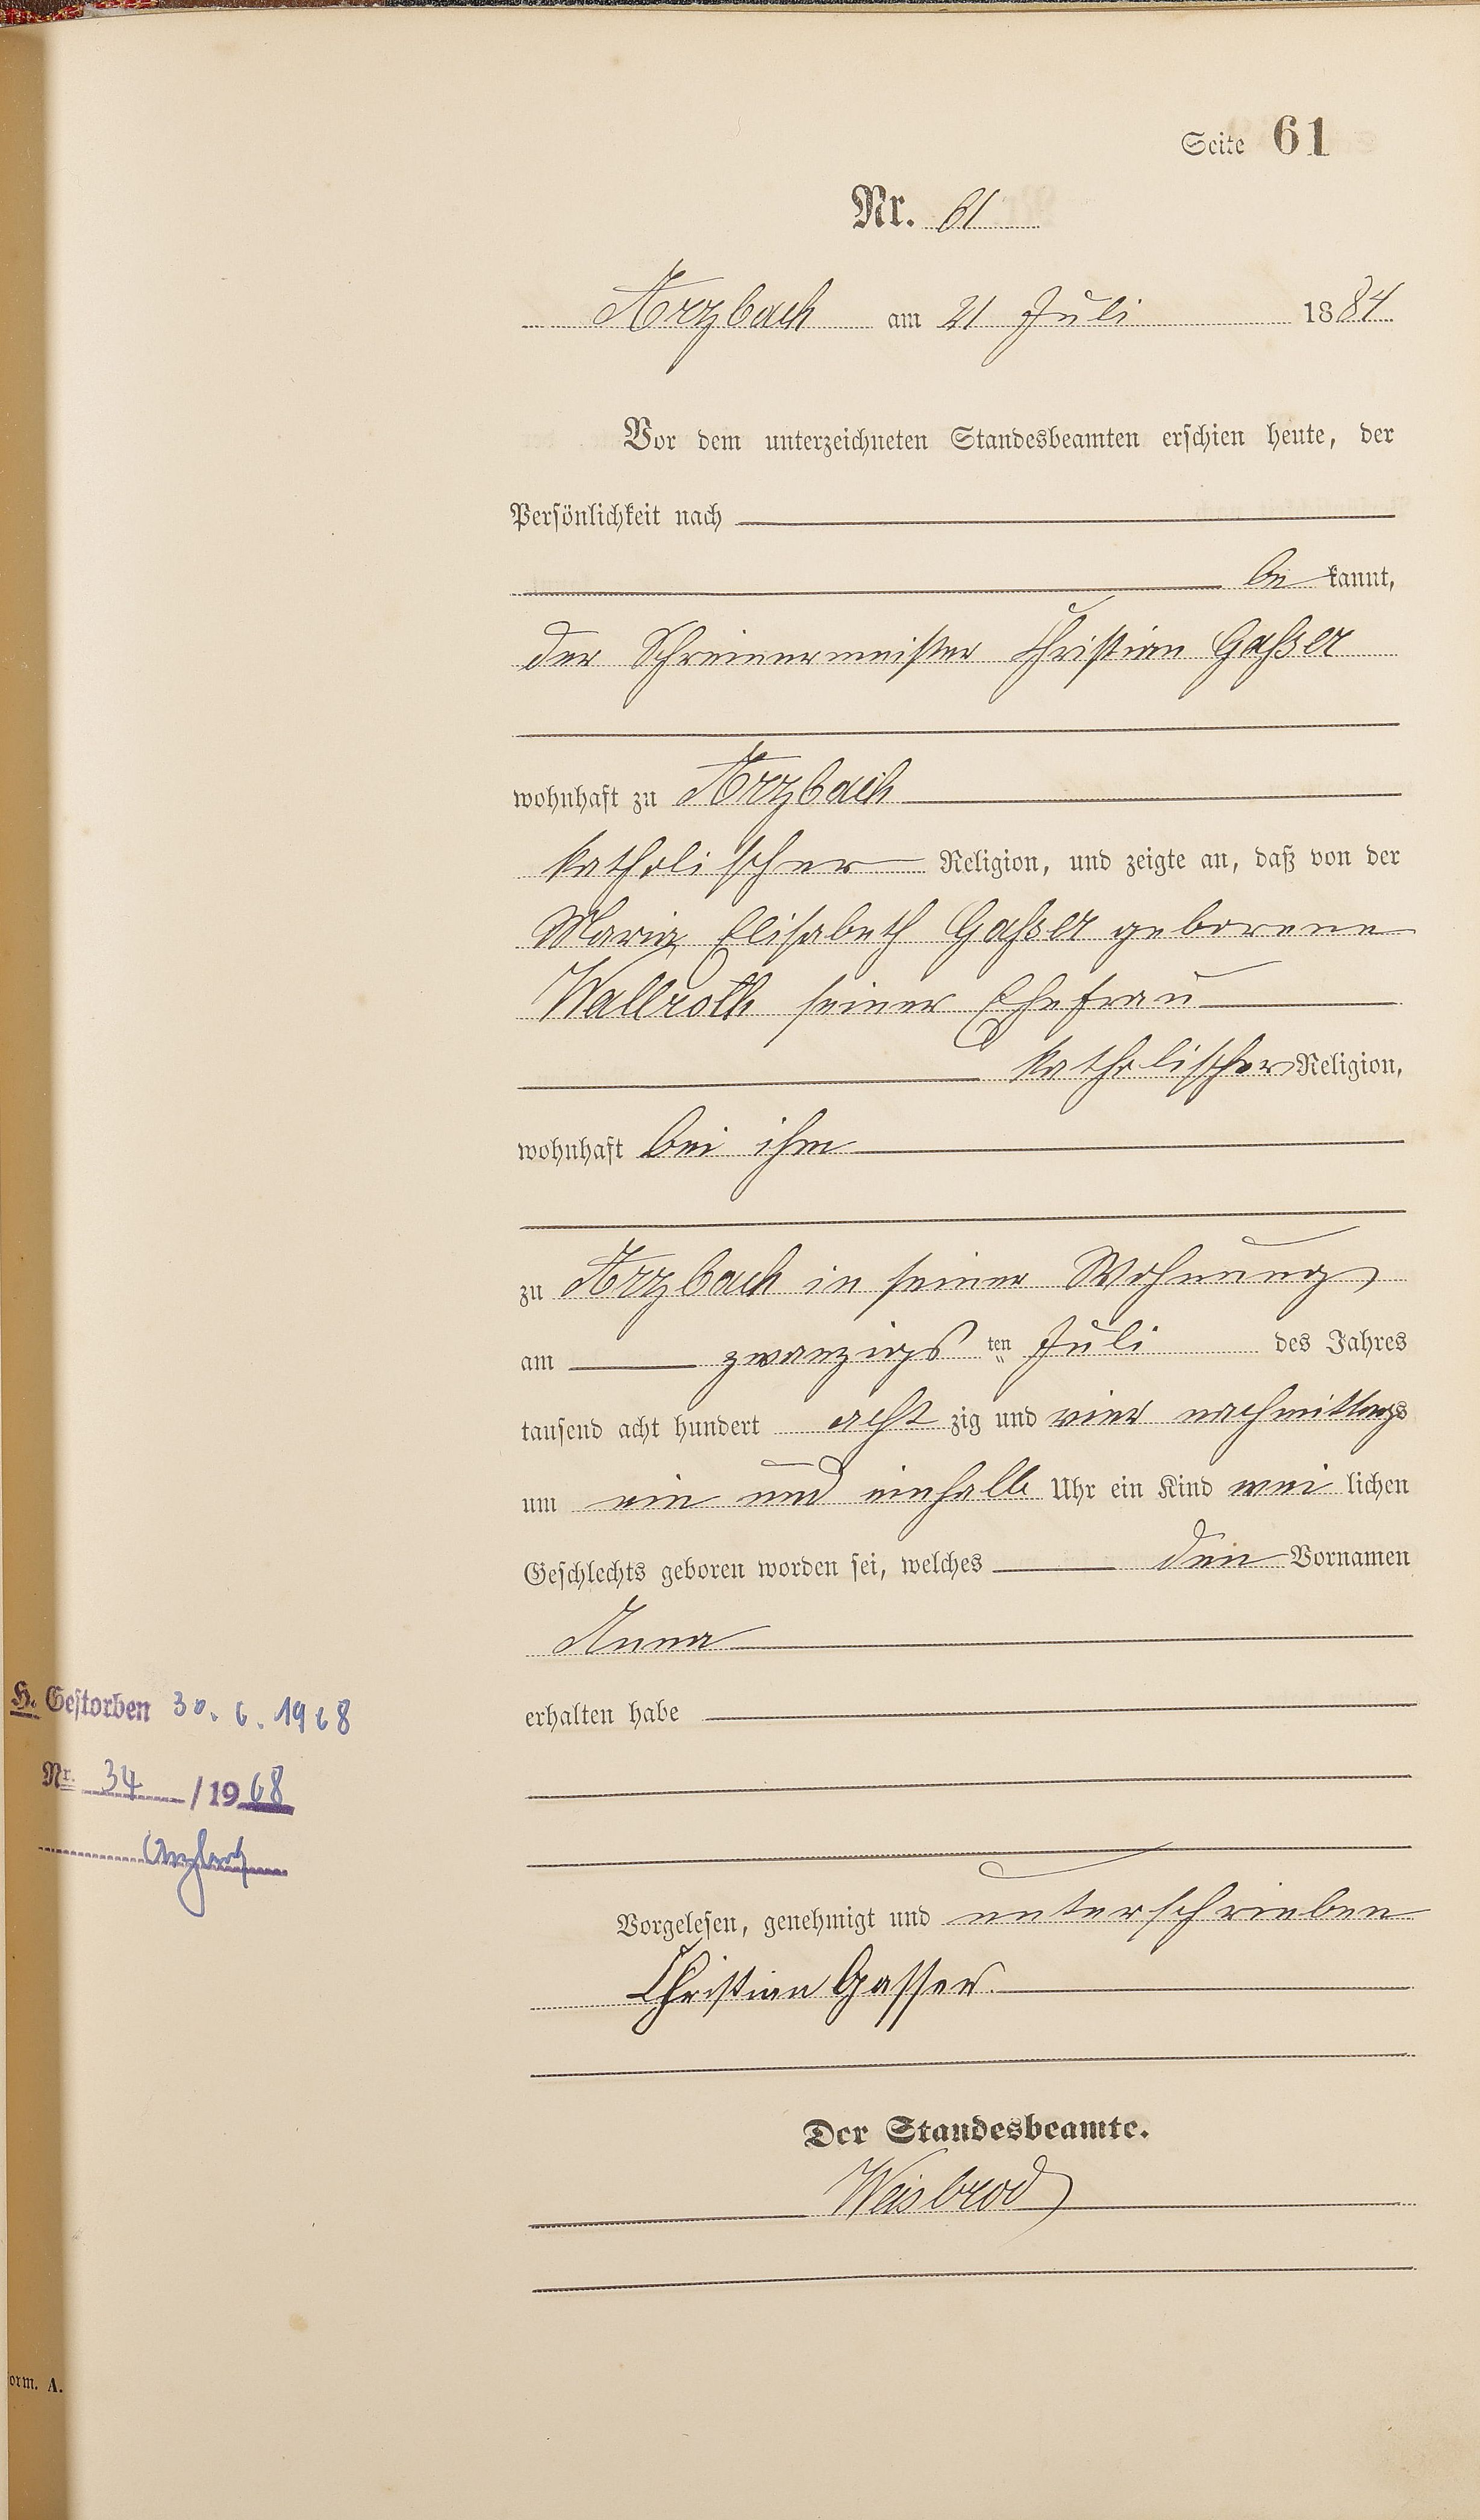 Seite 61
Nr. 61
Arzbach am 21 Juli 1884
Vor dem unterzeichneten Standesbeamten erschien heute, der
Persönlichkeit nach
be kannt,
der Schreinermeister Christian Gaßer
wohnhaft zu Arzbach
katholischer Religion, und zeigte an, daß von der
Maria Elisabeth Gaßer geborene
Wallroth seiner Ehefrau
katholischer Religion,
wohnhaft bei ihm
zu Arzbach in seiner Wohnung
am zwanzigs ten Juli des Jahres
tausend acht hundert acht zig und vier nachmittags
um ein und einhalb Uhr ein Kind wei lichen
Geschlechts geboren worden sei, welches den Vornamen
Anna
erhalten habe
H. Gestorben 30. 6. 1968
Nr. 34 / 1968
Arzbach
Vorgelesen, genehmigt und unterschrieben
Christian Gasser.
Der Standesbeamte.
Weisbrod
orm. A.